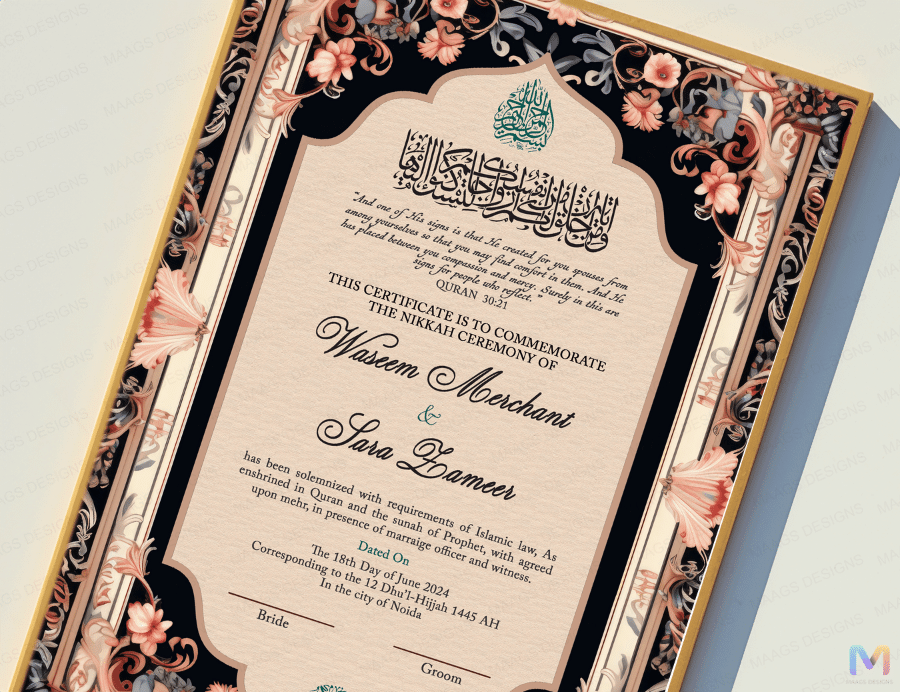 بسم الله الرحمن الرحيم
ومن آياته أن خلق لكم من أنفسكم أزواجا لتسكنوا إليها
"And one of His signs is that He created for you spouses from
among yourselves so that you may find comfort in them. And He
has placed between you compassion and mercy. Surely in this are
signs for people who reflect."
QURAN 30:21
THIS CERTIFICATE IS TO COMMEMORATE
THE NIKKAH CEREMONY OF
Waseem Merchant
&
Sara Zameer
has been solemnized with requirements of Islamic law, As
enshrined in Quran and the sunah of Prophet, with agreed
upon mehr, in presence of marraige officer and witness.
Dated On
The 18th Day of June 2024
Corresponding to the 12 Dhu'l-Hijjah 1445 AH
In the city of Noida
Bride
Groom
MAAGS DESIGNS